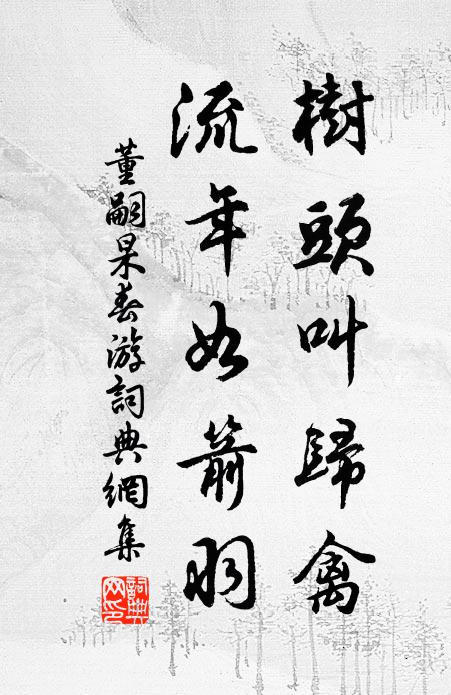 樹頭叫歸禽
流年如箭羽
董嗣杲春游詞典網集
詞典網印